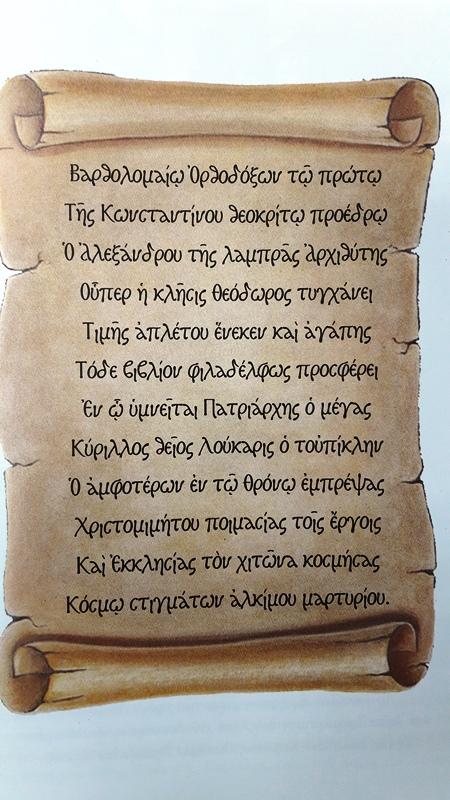 Βαρθολομαίῳ Ὀρθοδόξων τῷ πρώτῳ
Τῆς Κωνσταντίνου θεοκρίτῳ προέδρῳ
Ὁ Ἀλεξάνδρου τῆς λαμπρᾶς ἀρχιθύτης
Οὗπερ ἡ κλῆσις Θεόδωρος τυγχάνει
Τιμῆς ἀπλέτου ἕνεκεν καὶ ἀγάπης
Τόδε βιβλίον φιλαδέλφως προσφέρει
Ἐν ᾧ ὑμνεῖται Πατριάρχης ὁ μέγας
Κύριλλος θεῖος Λούκαρις ὁ τοὐπίκλην
Ὁ ἀμφοτέρων ἐν τῷ θρόνῳ ἐμπρέψας
Χριστομιμήτου ποιμασίας τοῖς ἔργοις
Καὶ Ἐκκλησίας τὸν χιτῶνα κοσμήσας
Κόσμῳ στιγμάτων ἀλκίμου μαρτυρίου.